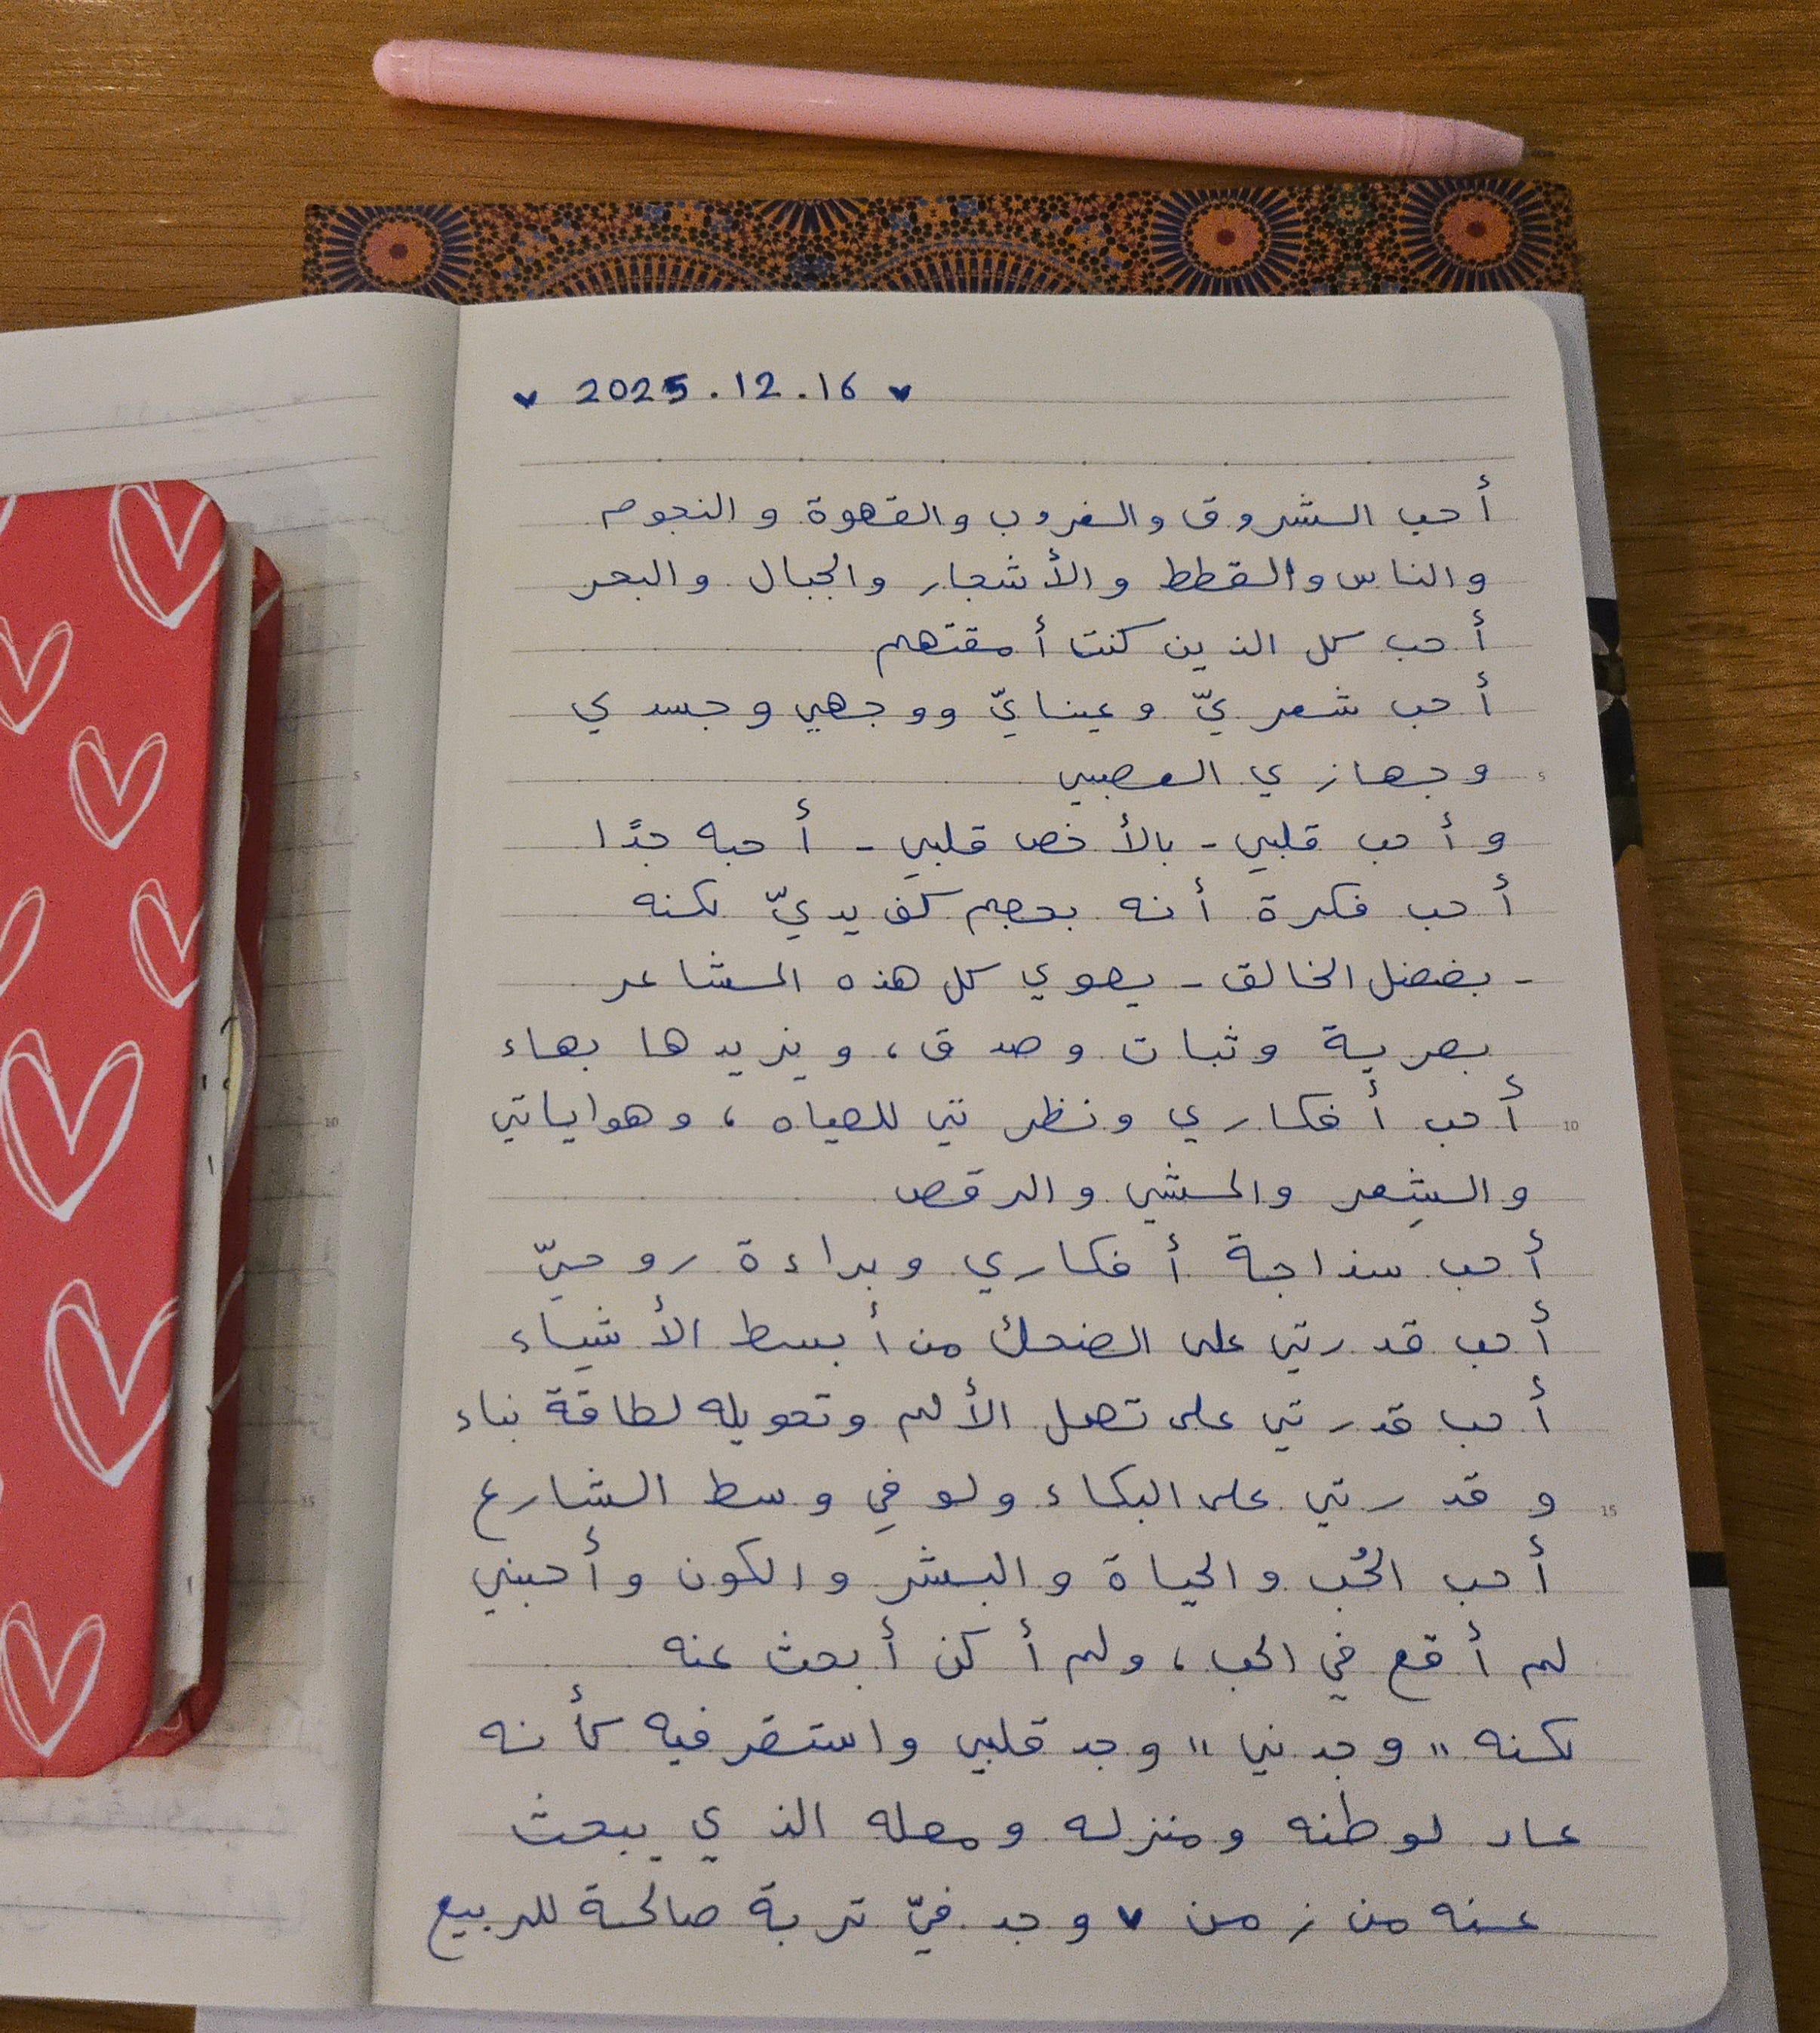 ♥ 2025.12.16 ♥
أحب الشروق والغروب والقهوة والنجوم
والناس والقطط والأشجار والجبال والبحر
أحب كل الذين كنت أمقتهم
أحب شعريّ وعينايّ ووجهي وجسدي
5 وجهازي العصبي
وأحب قلبي - بالأخص قلبي - أحبه جدًا
أحب فكرة أنه بحجم كف يديّ لكنه
- بفضل الخالق - يحوي كل هذه المشاعر
بحرية وثبات وصدق، ويزيدها بهاء
10 أحب أفكاري ونظرتي للحياه، وهواياتي
والشِعر والمشي والرقص
أحب سذاجة أفكاري وبراءة روحيّ
أحب قدرتي على الضحك من أبسط الأشياء
أحب قدرتي على تحمل الألم وتحويله لطاقة بناء
15 وقدرتي على البكاء ولو في وسط الشارع
أحب الحُب والحياة والبشر والكون وأحبني
لم أقع في الحب، ولم أكن أبحث عنه
لكنه "وجدني" وجد قلبي واستقر فيه كأنه
عاد لوطنه ومنزله ومحله الذي يبحث
عنه من زمن ♥ وجد فيّ تربة صالحة للربيع
5
10
15